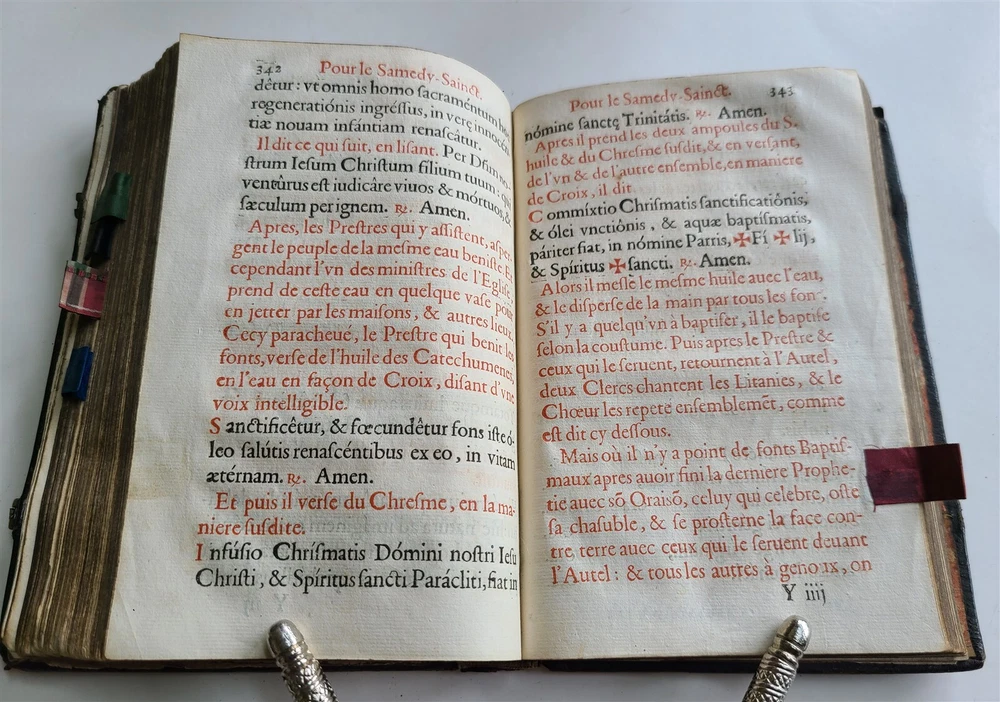 342 Pour le Samedy-Sainct.
dêtur: vt omnis homo sacraméntum hoc
regeneratiónis ingréssus, in verę innocén
tiæ nouam infántiam renascâtur.
Il dit ce qui suit, en lisant. Per Dñm no-
strum Iesum Christum filium tuum: qui
ventûrus est iudicâre viuos & mórtuos, &
sæculum per ignem. ℞. Amen.
Apres, les Prestres qui y assistent, asper-
gent le peuple de la mesme eau beniste. Et
cependant l'vn des ministres de l'Eglise,
prend de ceste eau en quelque vase pour
en jetter par les maisons, & autres lieux.
Cecy paracheué, le Prestre qui benit les
fonts, verse de l'huile des Catechumenes,
en l'eau en façon de Croix, disant d'vne
voix intelligible.
Sanctificêtur, & fœcundêtur fons iste ó-
leo salútis renascéntibus ex eo, in vitam
ætérnam. ℞. Amen.
Et puis il verse du Chresme, en la ma-
niere susdite.
Infúsio Chrísmatis Dómini nostri Iesu
Christi, & Spíritus sancti Parácliti, fiat in
Pour le Samedy-Sainct. 343
nómine sanctę Trinitátis. ℞. Amen.
Apres il prend les deux ampoules du S.
huile & du Chresme susdit, & en versant,
de l'vn & de l'autre ensemble, en maniere
de Croix, il dit
Commíxtio Chrismatis sanctificatiónis,
& ólei vnctiônis, & aquæ baptismatis,
páriter fiat, in nómine Parris, ✠ Fí ✠ lij,
& Spíritus ✠ sancti. ℞. Amen.
Alors il mesle le mesme huile auec l'eau,
& le disperse de la main par tous les fon
S'il y a quelqu'vn à baptiser, il le baptise
selon la coustume. Puis apres le Prestre &
ceux qui le seruent, retournent à l'Autel,
deux Clercs chantent les Litanies, & le
Chœur les repete ensemblemẽt, comme
est dit cy dessous.
Mais où il n'y a point de fonts Baptis-
maux apres auoir fini la derniere Prophe-
tie auec sõ Oraisõ, celuy qui celebre, oste
sa chasuble, & se prosterne la face con-
tre terre auec ceux qui le seruent deuant
l'Autel: & tous les autres à genoıx, on
Y iiij